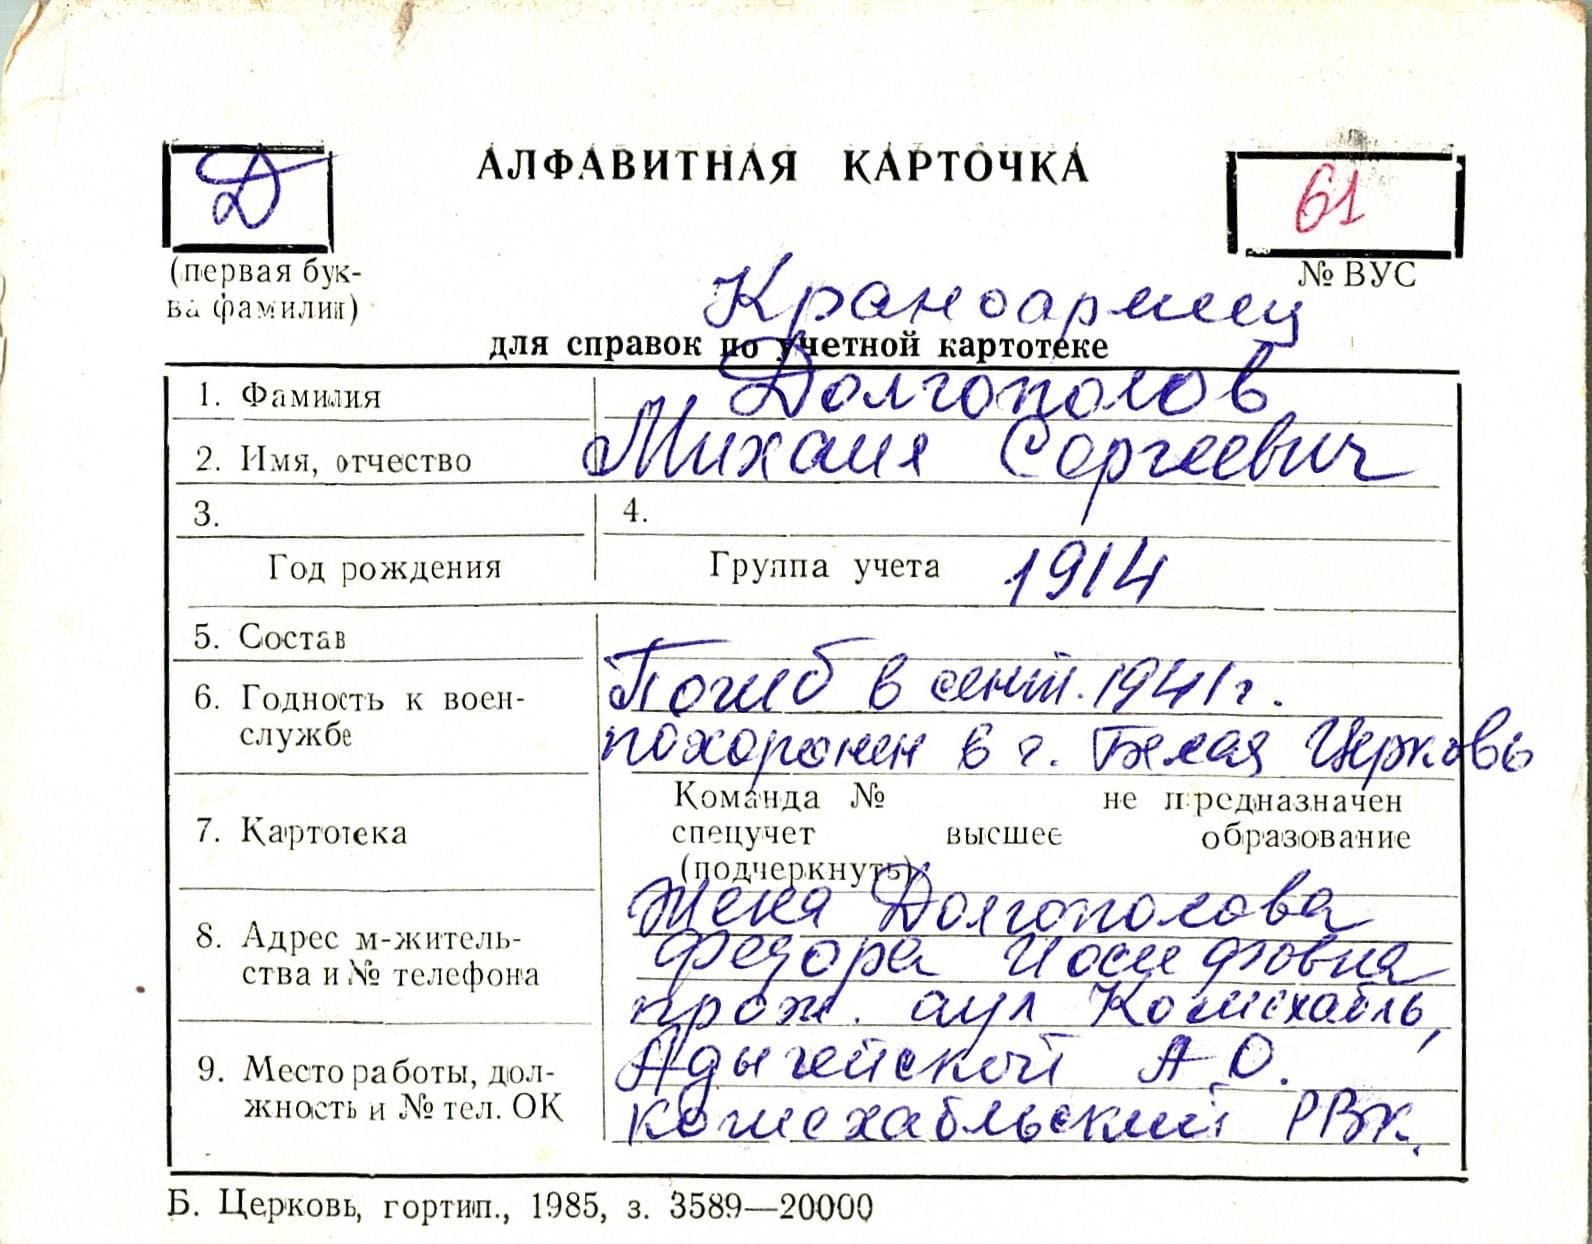 Д
АЛФАВИТНАЯ КАРТОЧКА
61
(первая бук-
ва фамилии)
№ ВУС
Краноармеец
для справок по учетной картотеке
1. Фамилия Долгополов
2. Имя, отчество Михаил Сергеевич
3. 4.
Год рождения Группа учета 1914
5. Состав
6. Годность к воен-
службе
Погиб в сент. 1941 г.
похоронен в г. Белая Церковь
7. Картотека
Команда № не предназначен
спецучет высшее образование
(подчеркнуть)
8. Адрес м-житель-
ства и № телефона
Жена Долгополова
Федора Иосифовна
прож. аул Кошехабль,
9. Место работы, дол-
жность и № тел. ОК
Адыгейской А.О.
Кошехабльский РВК.
Б. Церковь, гортип., 1985, з. 3589—20000